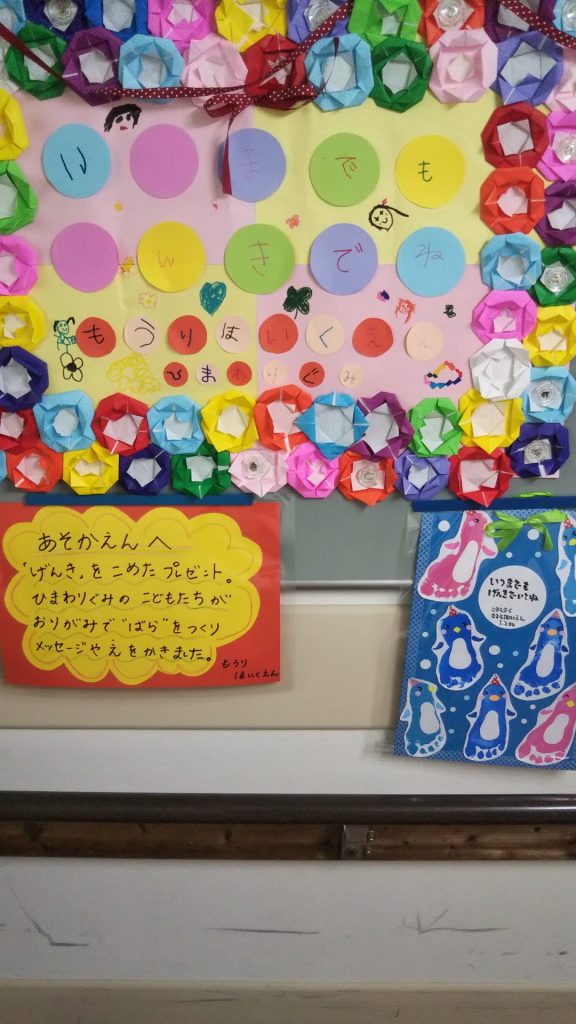 い までも
んきでね
もうりほいくえん
ひまわりぐみ
あそかえんへ
「げんき」をこめたプレゼント。
ひまわりぐみのこどもたちが
おりがみで"ばら"をつくり
メッセージやえをかきました。
もうり
ほいくえん
いつまでも
げんきでいてね